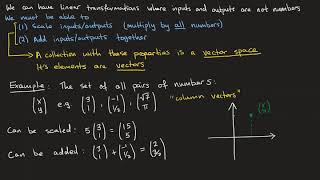 We can have linear transformations where inputs and outputs are not numbers
We must be able to
(1) Scale inputs/outputs (multiply by all numbers)
(2) Add inputs/outputs together
→ A collection with these properties is a vector space
It's elements are vectors
Example: The set of all pairs of numbers:
(x y) e.g. (3 1), (-1 1/2), (-√7 π) "column vectors"
Can be scaled: 5 (3 1) = (15 5)
Can be added: (3 1) + (-1 1/2) = (2 3/2)
(x y)